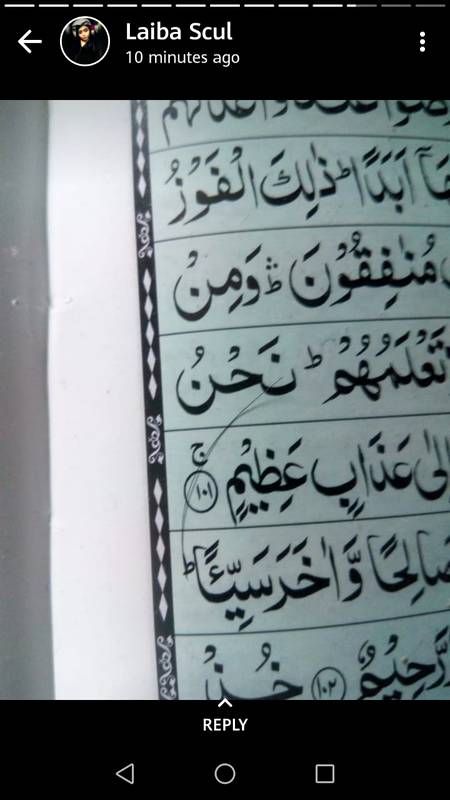 Laiba Scul
10 minutes ago
اَبَدًا ؕ ذٰلِكَ الْفَوْزُ
مُنٰفِقُوْنَ ۛؕ وَمِنْ
تَعْلَمُهُمْ ؕ نَحْنُ
عَذَابٍ عَظِيْمٍ ۚ ١٠١
صَالِحًا وَّاٰخَرَ سَيِّئًا ؕ
رَّحِيْمٌ ١٠٢ خُذْ
REPLY